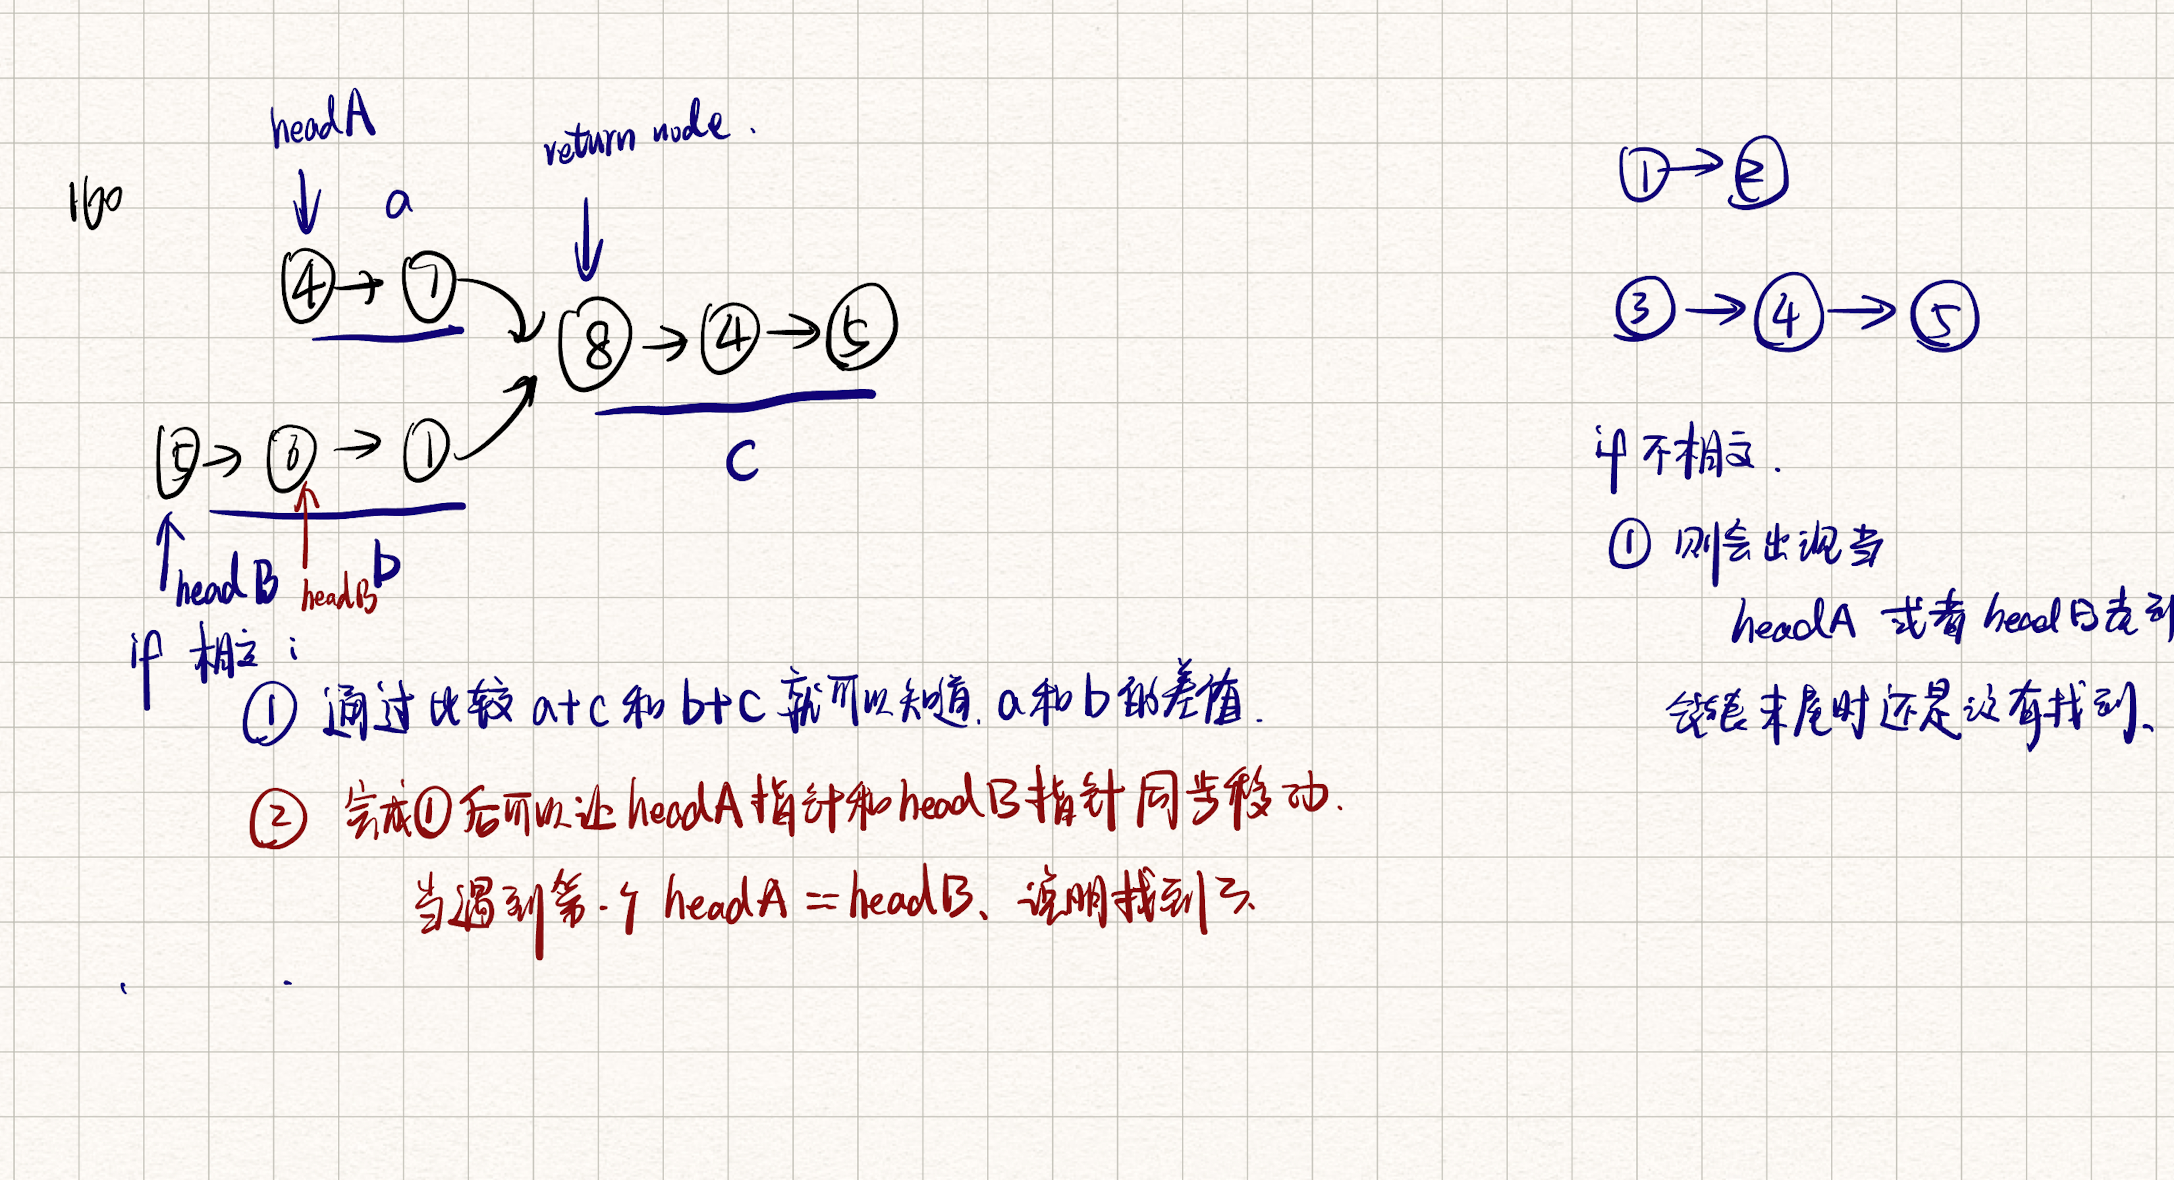 160
headA
return node.
a
④→⑦
⑧→④→⑤
⑤→⑥→①
c
headB
headB
b
if 相交:
① 通过比较 a+c 和 b+c 就可以知道. a和b的差值.
② 完成①后可以让headA指针和headB指针同步移动.
当遇到第一个 headA == headB、说明找到了.
①→②
③→④→⑤
if 不相交.
① 则会出现当
headA 或者 headB走到
链表末尾时还是没有找到、